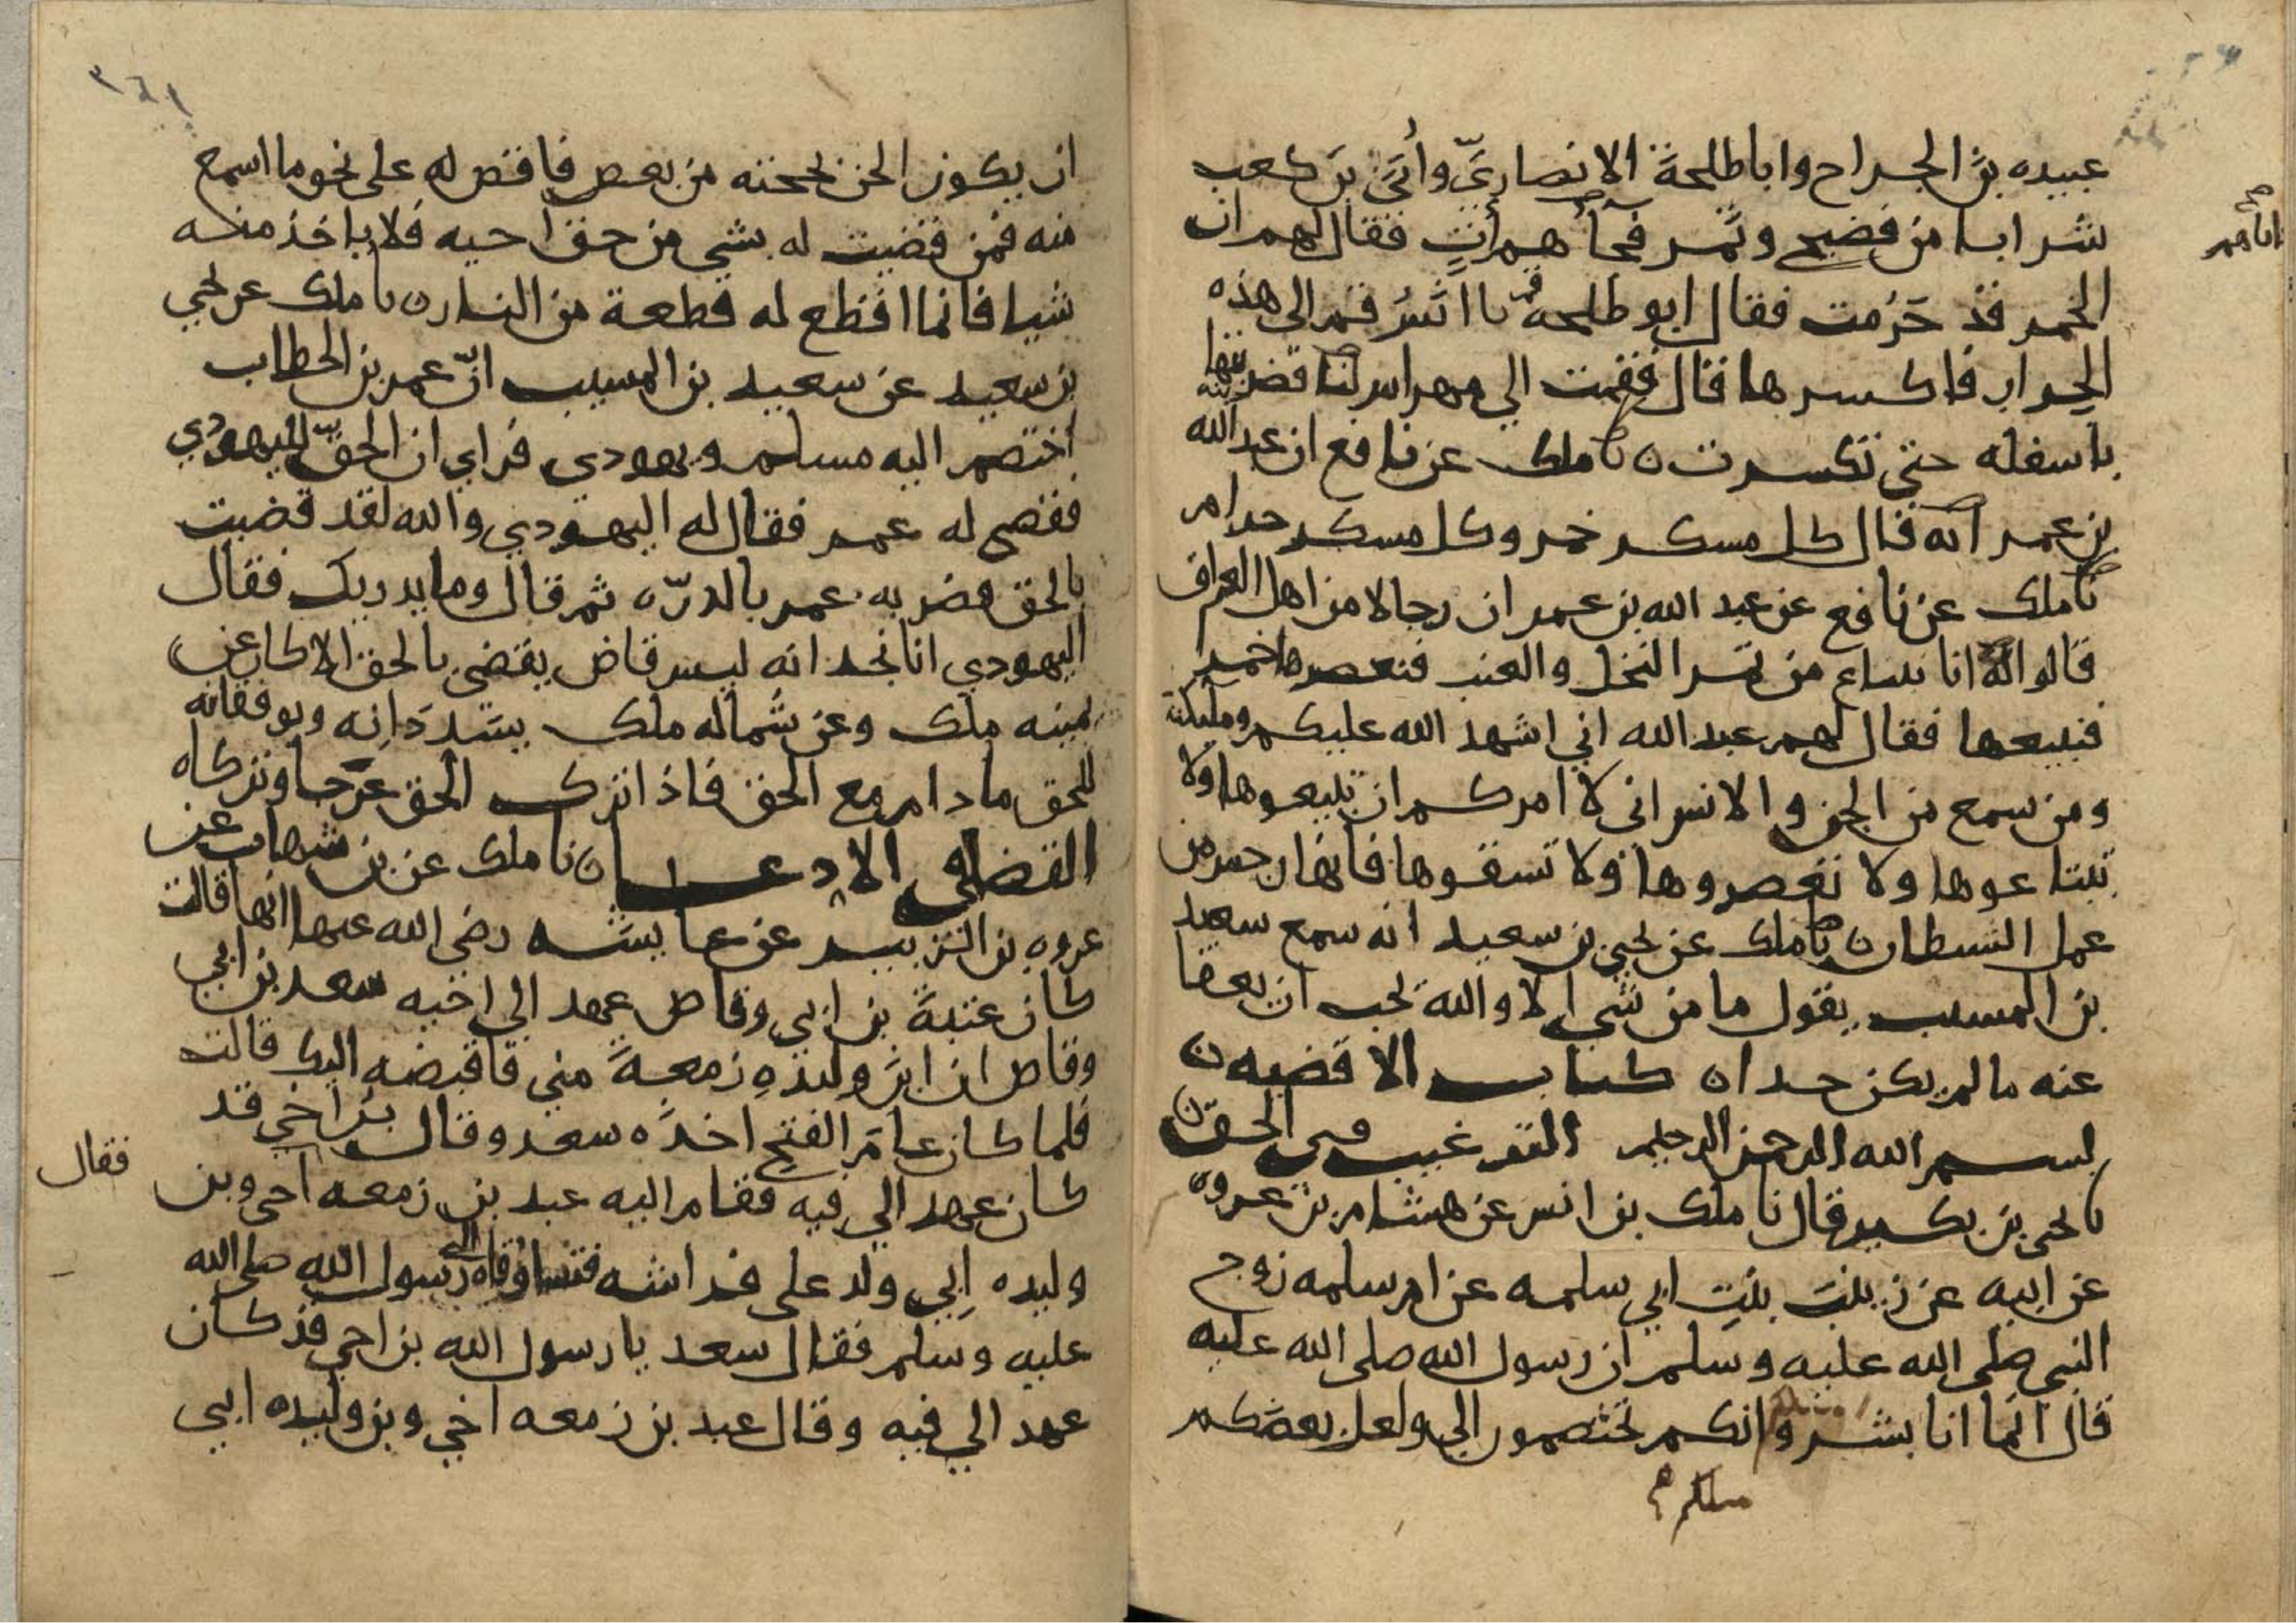 عبيده بنَ الجراح واباطلحةَ الانصاريَّ وأُبَيَّ بنَ كعب
شرابا من فضيح وتمر فجآهم أتٍ فقال لهم ان
اتاهم
صح
الخمر قد حَرُمت فقال ابو طلحه يا انسُ قم الى هذه
الجرار فاكسرها قال فقمت الي مهراس لنا فضربتها
باسفله حتى تكسرت ٥ نا ملك عن نافع ان عبد الله
بن عمر انه قال كل مسكر خمر وكل مسكر حرام
نا ملك عن نافع عن عبد الله بن عمر ان رجالا من اهل العراق
قالوا له انا نبتاع من تمر النخل والعنب فنعصرها خمرا
فنبيعها فقال لهم عبد الله اني اشهد الله عليكم وملئكته
ومن سمع من الجن والانس اني لا امركم ان تبيعوها ولا
تبتاعوها ولا تعصروها ولا تسقوها فانها رجس من
عمل الشيطان ٥ نا ملك عن يحيى بن سعيد انه سمع سعيد
بن المسيب يقول ما من شي الا والله يحب ان يعفا
عنه ما لم يكن حدا ٥ كتاب الاقضيه ٥
بسم الله الرحمن الرحيم الترغيب في الحق ٥
نا يحيى بن بكير قال نا ملك بن انس عن هشام بن عروه
عن ابيه عن زينبَ بنتِ ابي سلمه عن ام سلمه زوج
النبي صلى الله عليه وسلم ان رسول الله صلى الله عليه
وسلم قال انما انا بشر وانكم تختصمون الي ولعل بعضكم
ان يكون الحن بحجته من بعض فاقض له على نحو ما اسمع
منه فمن قضيت له بشي من حق اخيه فلا ياخذ منه
شيا فانما اقطع له قطعة من النار ٥ نا ملك عن يحيي
بن سعيد عن سعيد بن المسيب انّ عمر بن الخطاب
اختصم اليه مسلم ويهودي فراي ان الحق لليهودي
فقضى له عمر فقال له اليهودي والله لقد قضيت
بالحق فضربه عمر بالدرّه ثم قال وما يدريك فقال
اليهودي انا نجد انه ليس قاض يقضي بالحق الا كان عن
يمينه ملك وعن شماله ملك يسَددَانِه ويوفقانه
للحق ما دام مع الحق فاذا ترك الحق عرَجا وتركاه
القضا في الادعا ٥ نا ملك عن بن شهاب عن
عروه بن الزبير عن عايشه رضي الله عنها انها قالت
كان عتبةُ بن ابي وقاص عهد الي اخيه سعد بن ابي
وقاص ان ابنَ وليدهِ زمعةَ مني فاقبضه اليك قالت
فلما كان عامَ الفتح اخذَه سعد وقال بن اخي قد
كان عهد الي فيه فقام اليه عبد بن زمعه اخي وبن
فقال
وليده ابي ولد على فراشه فتساوقاه الى رسول الله صلى الله
عليه وسلم فقال سعد يا رسول الله بن اخي قد كان
عهد الي فيه وقال عبد بن زمعه اخي وبن وليده ابي